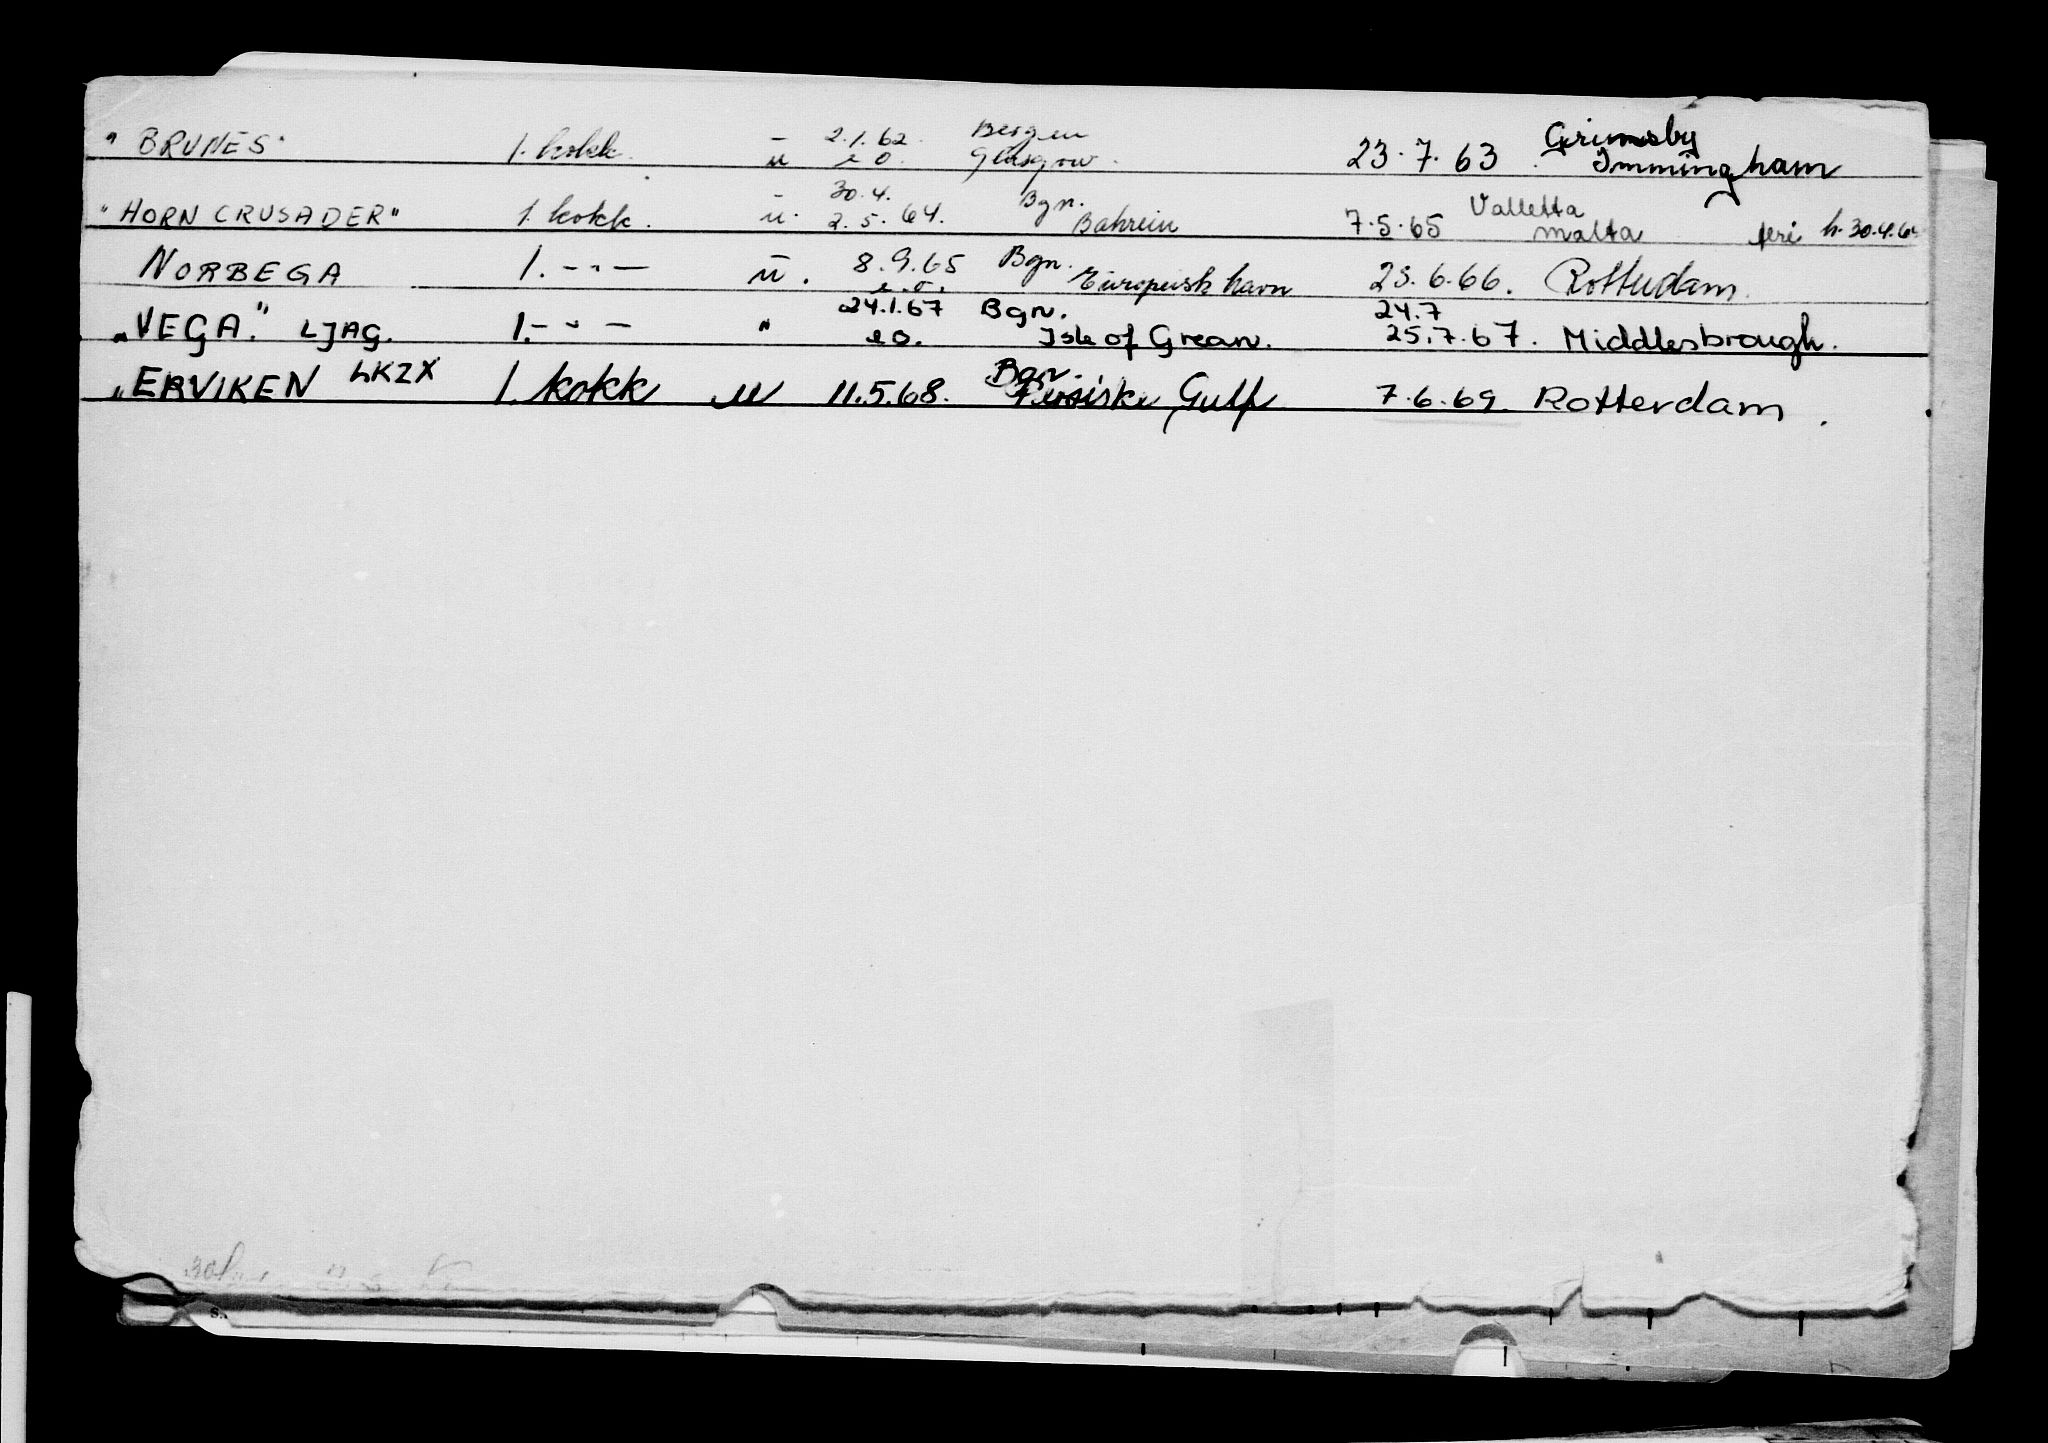 "BRUNES" 1. kokk. – u 2.1.62. e o. Bergen Glasgow. 23.7.63 Grimsby Immingham
"HORN CRUSADER" 1. kokk. u. 30.4. 2.5.64. Bgn. Bahrein 7.5.65 Valletta Malta feri h. 30.4.6
NORBEGA 1. – " – u. 8.9.65 e.o. Bgn. Europeisk havn 23.6.66. Rotterdam.
"VEGA." LJAG. 1. – " – " 24.1.67 e o. Bgn. Isle of Grean. 24.7 25.7.67. Middlesbrough.
"ERVIKEN LKZX 1. kokk u 11.5.68. Bgn. Persiske Gulf 7.6.69. Rotterdam.